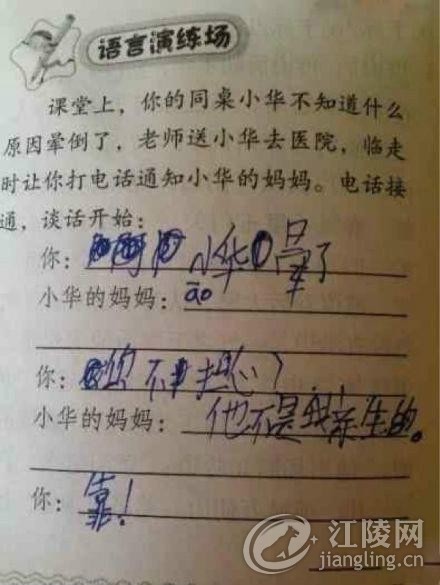 语言演练场
课堂上，你的同桌小华不知道什么
原因晕倒了，老师送小华去医院，临走
时让你打电话通知小华的妈妈。电话接
通，谈话开始：
你：小华晕了
小华的妈妈：āo
你：你不担心？
小华的妈妈：他不是我亲生的。
你：靠！
江陵网
jiangling.cn